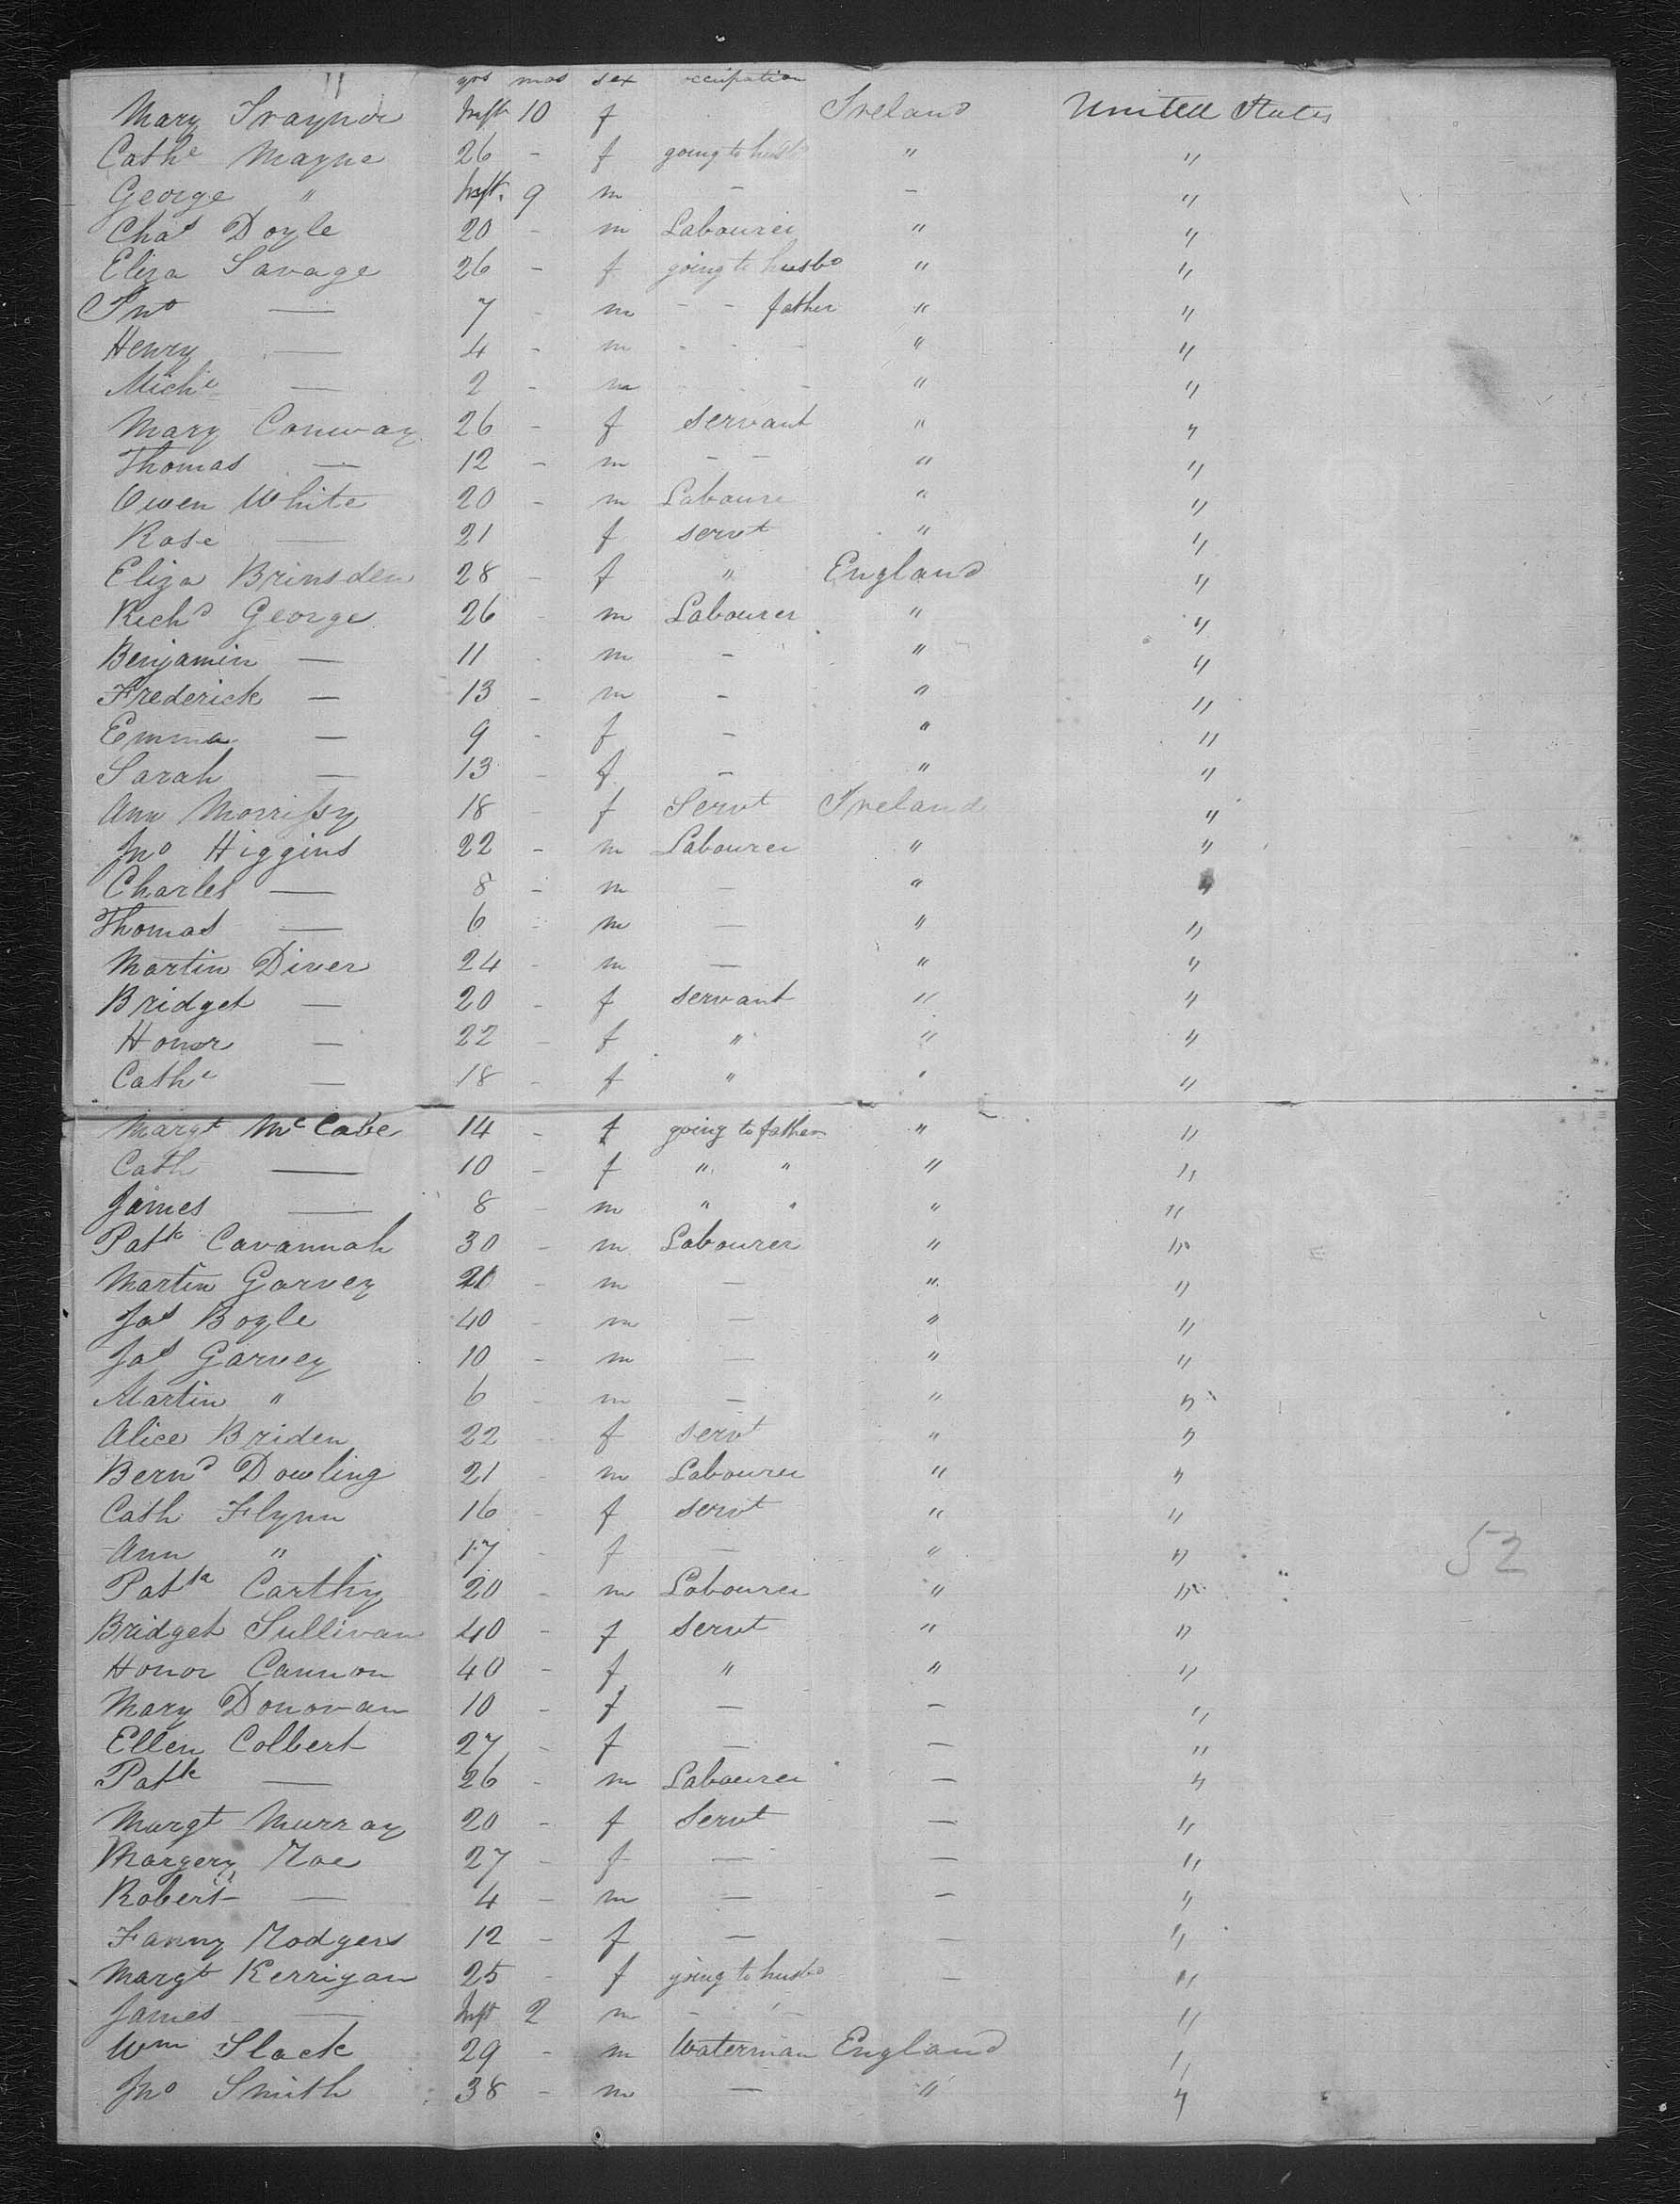 11 yrs mos sex occupation
Mary Traynor Inft 10 f Ireland United States
Cathe Mayne 26 - f going to husbd " "
George " Inft. 9 m - - "
Chas Doyle 20 - m Labourer " "
Eliza Savage 26 - f going to husbd " "
Jno — 7 - m - - father " "
Henry — 4 - m - - - " "
Michl — 2 - m - - - " "
Mary Conway 26 - f servant " "
Thomas — 12 - m - - " "
Owen White 20 - m Laboure " "
Rose — 21 f servt " "
Eliza Brinsden 28 - f " England "
Richd George 26 - m Labourer " "
Benjamin — 11 - m - " "
Frederick — 13 - m - " "
Emma — 9 - f - " "
Sarah — 13 - f - " "
Ann Morrissy 18 - f Servt Ireland "
Jno Higgins 22 - m Labourer " "
Charles — 8 - m — " "
Thomas — 6 - m — " "
Martin Diver 24 - m — " "
Bridget — 20 - f servant " "
Honor — 22 - f " " "
Cathe — 18 - f " " "
Margt McCabe 14 - f going to father " "
Cath — 10 - f " " " "
James — 8 - m " " " "
Patk Cavannah 30 - m Labourer " "
Martin Garvey 20 - m — " "
Jas Boyle 40 - m — " "
Jas Garvey 10 - m — " "
Martin " 6 - m — " "
Alice Briden 22 - f servt " "
Bernd Dowling 21 - m Labourer " "
Cath Flynn 16 - f servt " "
Ann " 17 - f — " " 52
Patk Carthy 20 - m Labourer " "
Bridget Sullivan 40 - f servt " "
Honor Cannon 40 - f " " "
Mary Donovan 10 - f — — "
Ellen Colbert 27 - f — — "
Patk — 26 - m Labourer — "
Margt Murray 20 - f Servt — "
Margery Roe 27 - f — — "
Robert — 4 - m — — "
Fanny Rodgers 12 - f — — "
Margt Kerrigan 25 - f going to husbd — "
James — Inft 2 m - - - "
Wm Slack 29 - m Waterman England "
Jno Smith 38 - m — " "